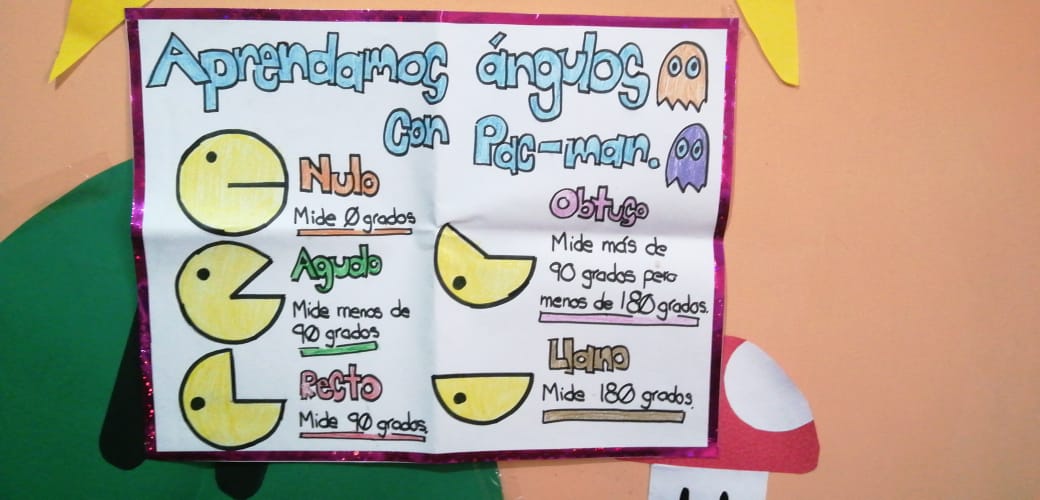 Aprendamos ángulos
con Pac-man.
Nulo
Mide 0 grados
Agudo
Mide menos de
90 grados
Recto
Mide 90 grados.
Obtuso
Mide más de
90 grados pero
menos de 180 grados.
Llano
Mide 180 grados.